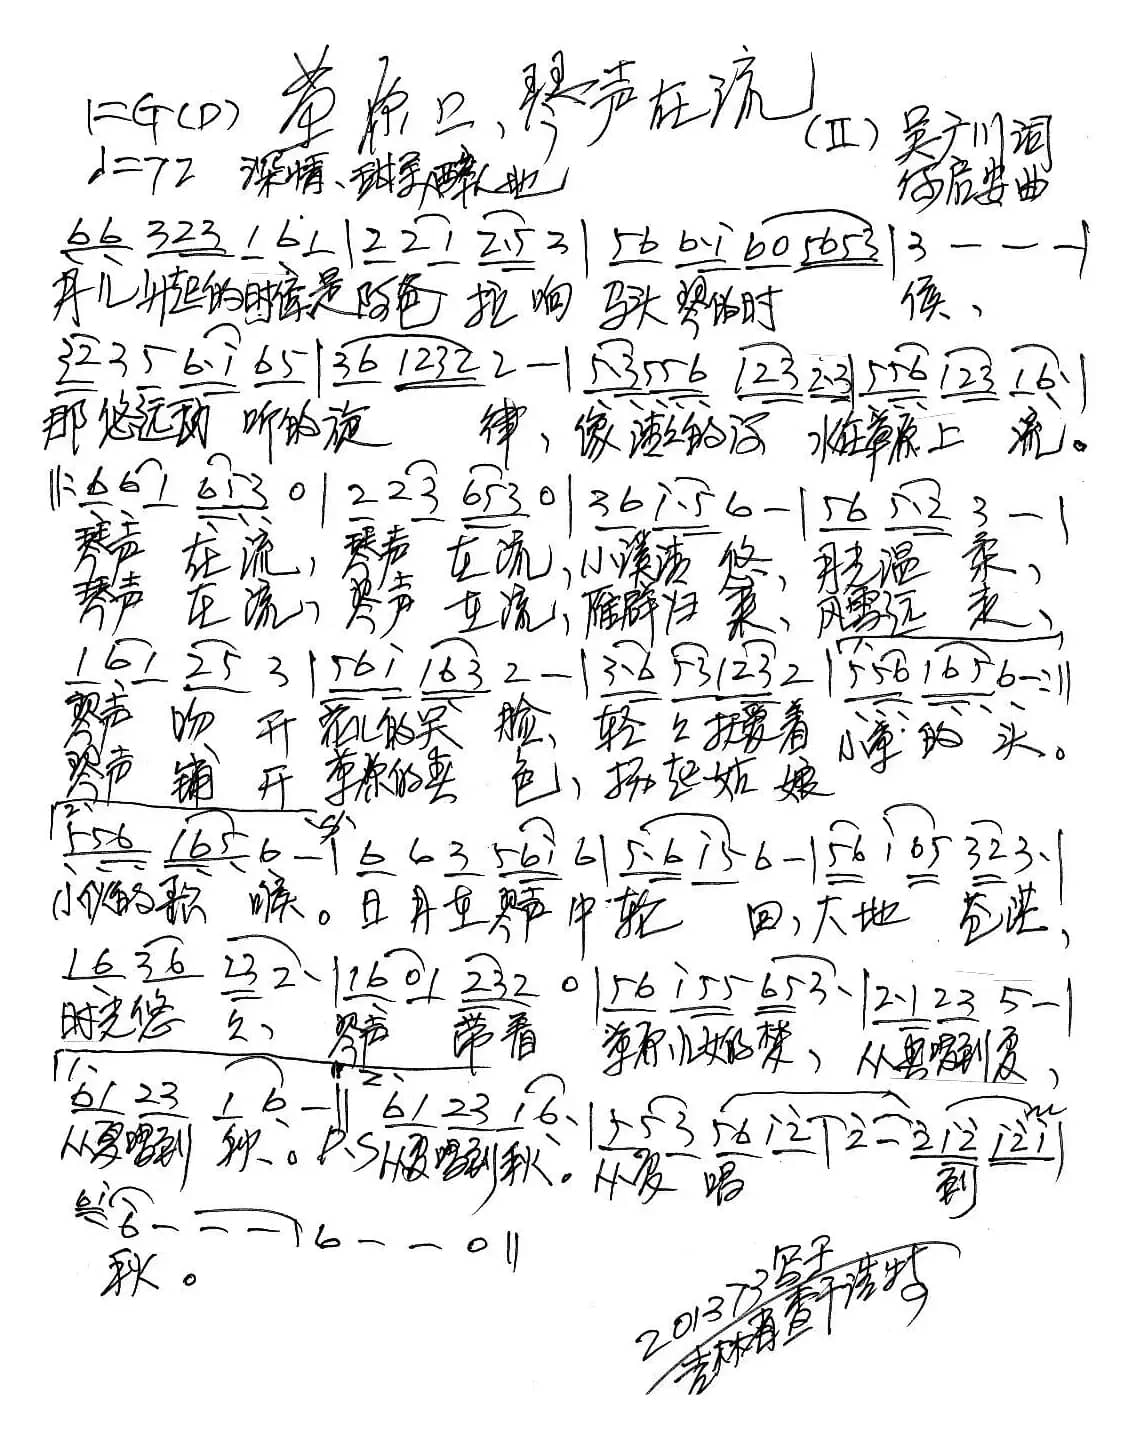 1=G(D) 草原上,琴声在流
(II) 吴广川词
♩=72 深情、甜美陶醉地 何启安曲
66 323 161 | 221 2·5 3 | 56 6·i 60 5653 | 3 - - - |
月儿升起的时候是阿爸拉响马头琴的时候、
323 5 6·i 65 | 36 1232 2 - | 5·3556 123 2·3 | 556 123 16· |
那悠远动听的旋律,像清清的河水在草原上流。
||: 661 653 0 | 223 653 0 | 36 i·5 6 - | 56 5·3 3 - |
琴声在流,琴声在流,小溪清悠,月光温柔,
琴声在流,琴声在流,雁群归来,风雪远走,
161 25 3 | 56i 163 2 - | 3·6 53 123 2 | 556 165 6 - :||
琴声吻开花儿的笑脸,轻轻抚爱着小草的头。
琴声铺开草原的春色,扬起姑娘
2. 556 165 6 - | 6 6 3 56i 6 | 5·6 i5 6 - | 56 i 65 323· |
小伙的歌喉。日月在琴声中轮回,大地苍茫,
16 36 23 2· | 1601 232 0 | 56 i55 653· | 2·1 23 5 - |
时光悠久,琴声带着草原儿女的梦,从春唱到夏,
1. 61 23 16 - || 2. 61 23 16· | 553 56 i2 | 2 - 212 i2i |
从夏唱到秋。D.S 从夏唱到秋。从夏唱到
6i 6 - - - | 6 - - 0 ||
秋。
201373写于
吉林省查干浩特